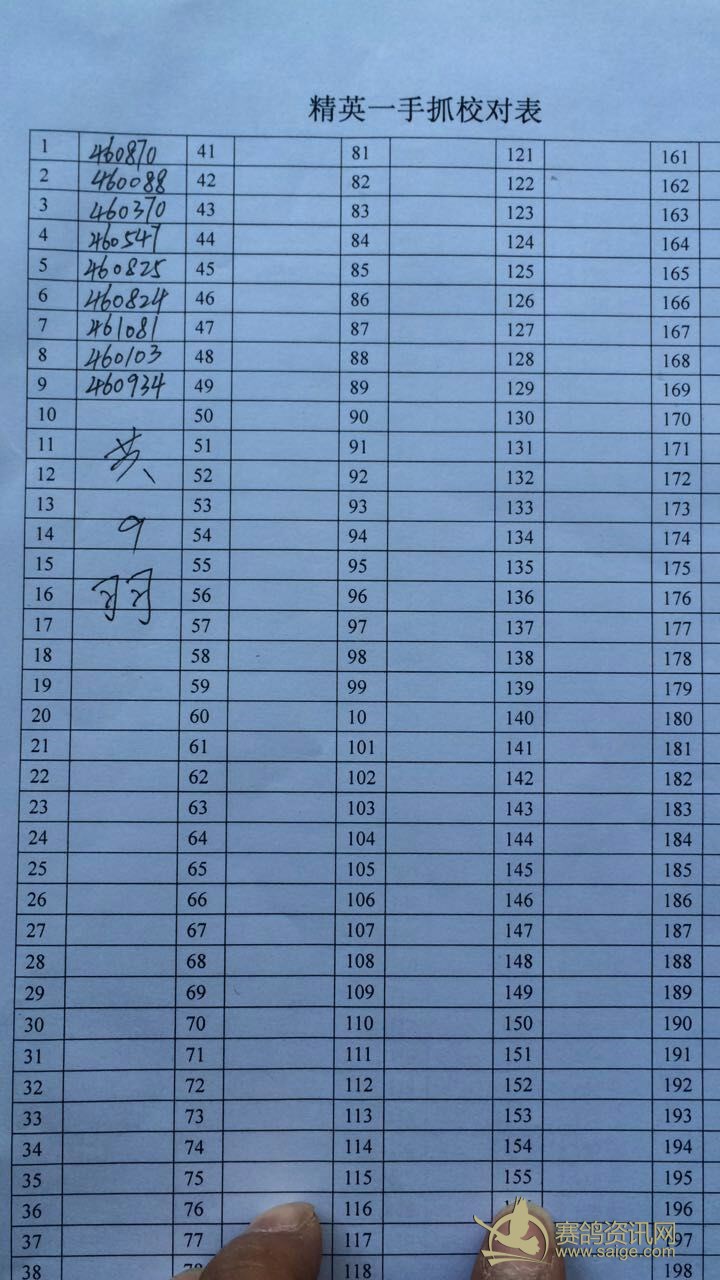 精英一手抓校对表
1 460870 41 81 121 161
2 460088 42 82 122 162
3 460370 43 83 123 163
4 460547 44 84 124 164
5 460825 45 85 125 165
6 460824 46 86 126 166
7 461081 47 87 127 167
8 460103 48 88 128 168
9 460934 49 89 129 169
10 50 90 130 170
11 共 51 91 131 171
12 52 92 132 172
13 53 93 133 173
14 9 54 94 134 174
15 55 95 135 175
16 羽 56 96 136 176
17 57 97 137 177
18 58 98 138 178
19 59 99 139 179
20 60 10 140 180
21 61 101 141 181
22 62 102 142 182
23 63 103 143 183
24 64 104 144 184
25 65 105 145 185
26 66 106 146 186
27 67 107 147 187
28 68 108 148 188
29 69 109 149 189
30 70 110 150 190
31 71 111 151 191
32 72 112 152 192
33 73 113 153 193
34 74 114 154 194
35 75 115 155 195
36 76 116 196
37 77 117 197
38 118 198
赛鸽资讯网
www.saige.com